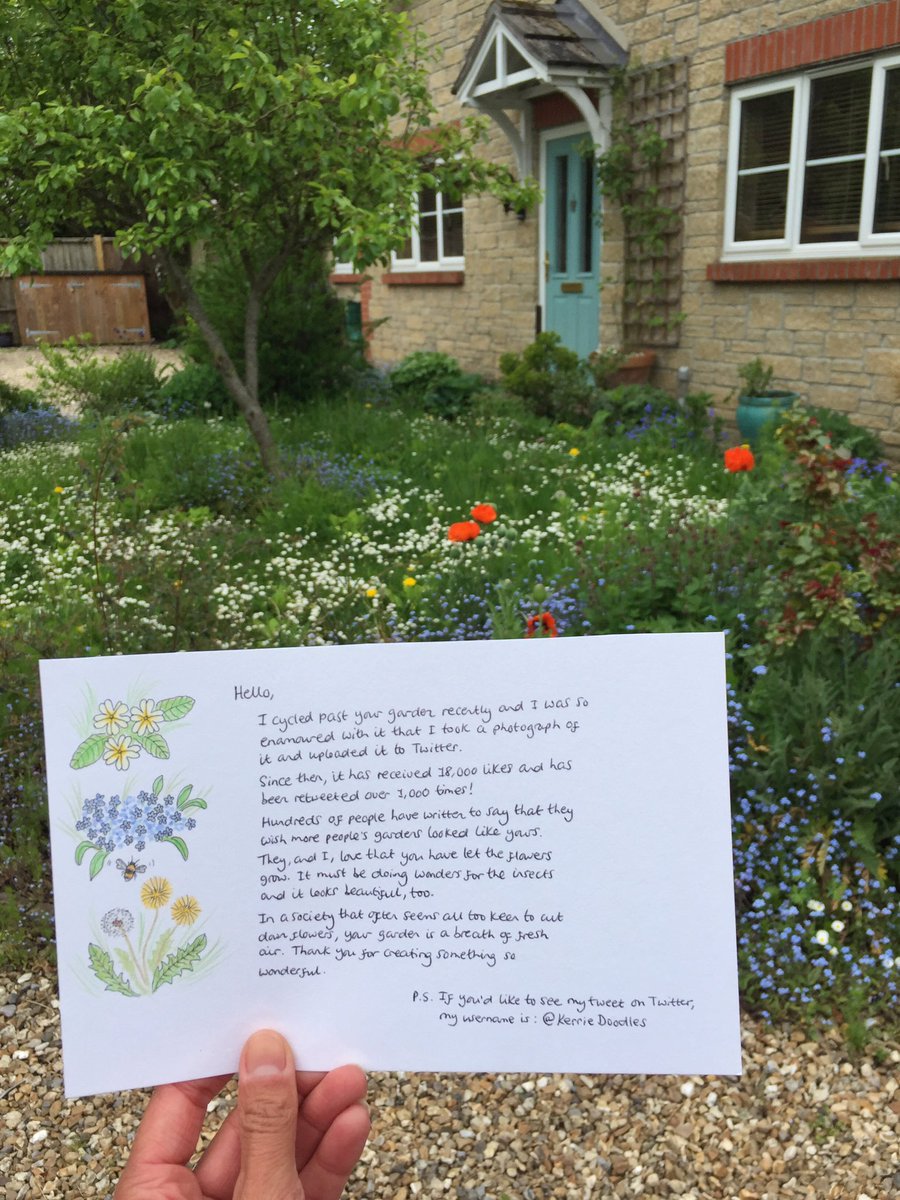 Hello,
I cycled past your garden recently and I was so
enamoured with it that I took a photograph of
it and uploaded it to Twitter.
Since then, it has received 18,000 likes and has
been retweeted over 1,000 times!
Hundreds of people have written to say that they
wish more people's gardens looked like yours.
They, and I, love that you have let the flowers
grow. It must be doing wonders for the insects
and it looks beautiful, too.
In a society that often seems all too keen to cut
down flowers, your garden is a breath of fresh
air. Thank you for creating something so
wonderful.
P.S. If you'd like to see my tweet on Twitter,
my username is: @Kerrie Doodles